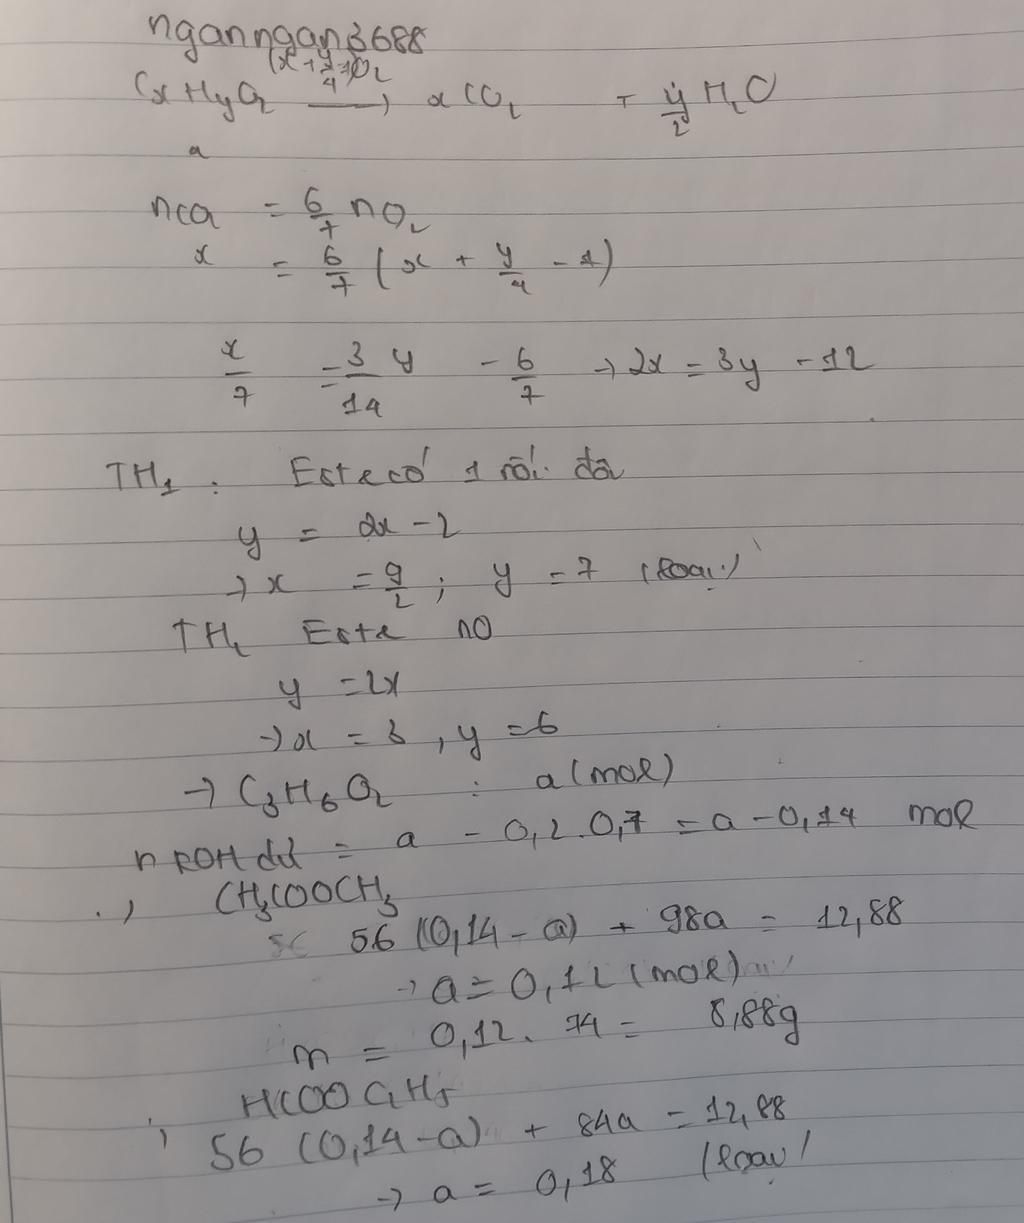 nganngan3688
(x+y/4-1)O2
CxHyO2 → xCO2 + y/2 H2O
a
nCO2 = 6/7 nO2
x = 6/7 (x + y/4 - 1)
x/7 = 3/14 y - 6/7 → 2x = 3y - 12
TH1 : Este có 1 nối đôi
y = 2x - 2
→ x = 9/2 ; y = 7 (loại)
TH2 Este no
y = 2x
→ x = 3 , y = 6
→ C3H6O2 : a (mol)
n KOH dư = a - 0,2.0,7 = a - 0,14 mol
., CH3COOCH3
56 (0,14 - a) + 98a = 12,88
→ a = 0,12 (mol)
m = 0,12. 74 = 8,88g
, HCOOC2H5
56 (0,14 - a) + 84a = 12,88
→ a = 0,18 (loại)